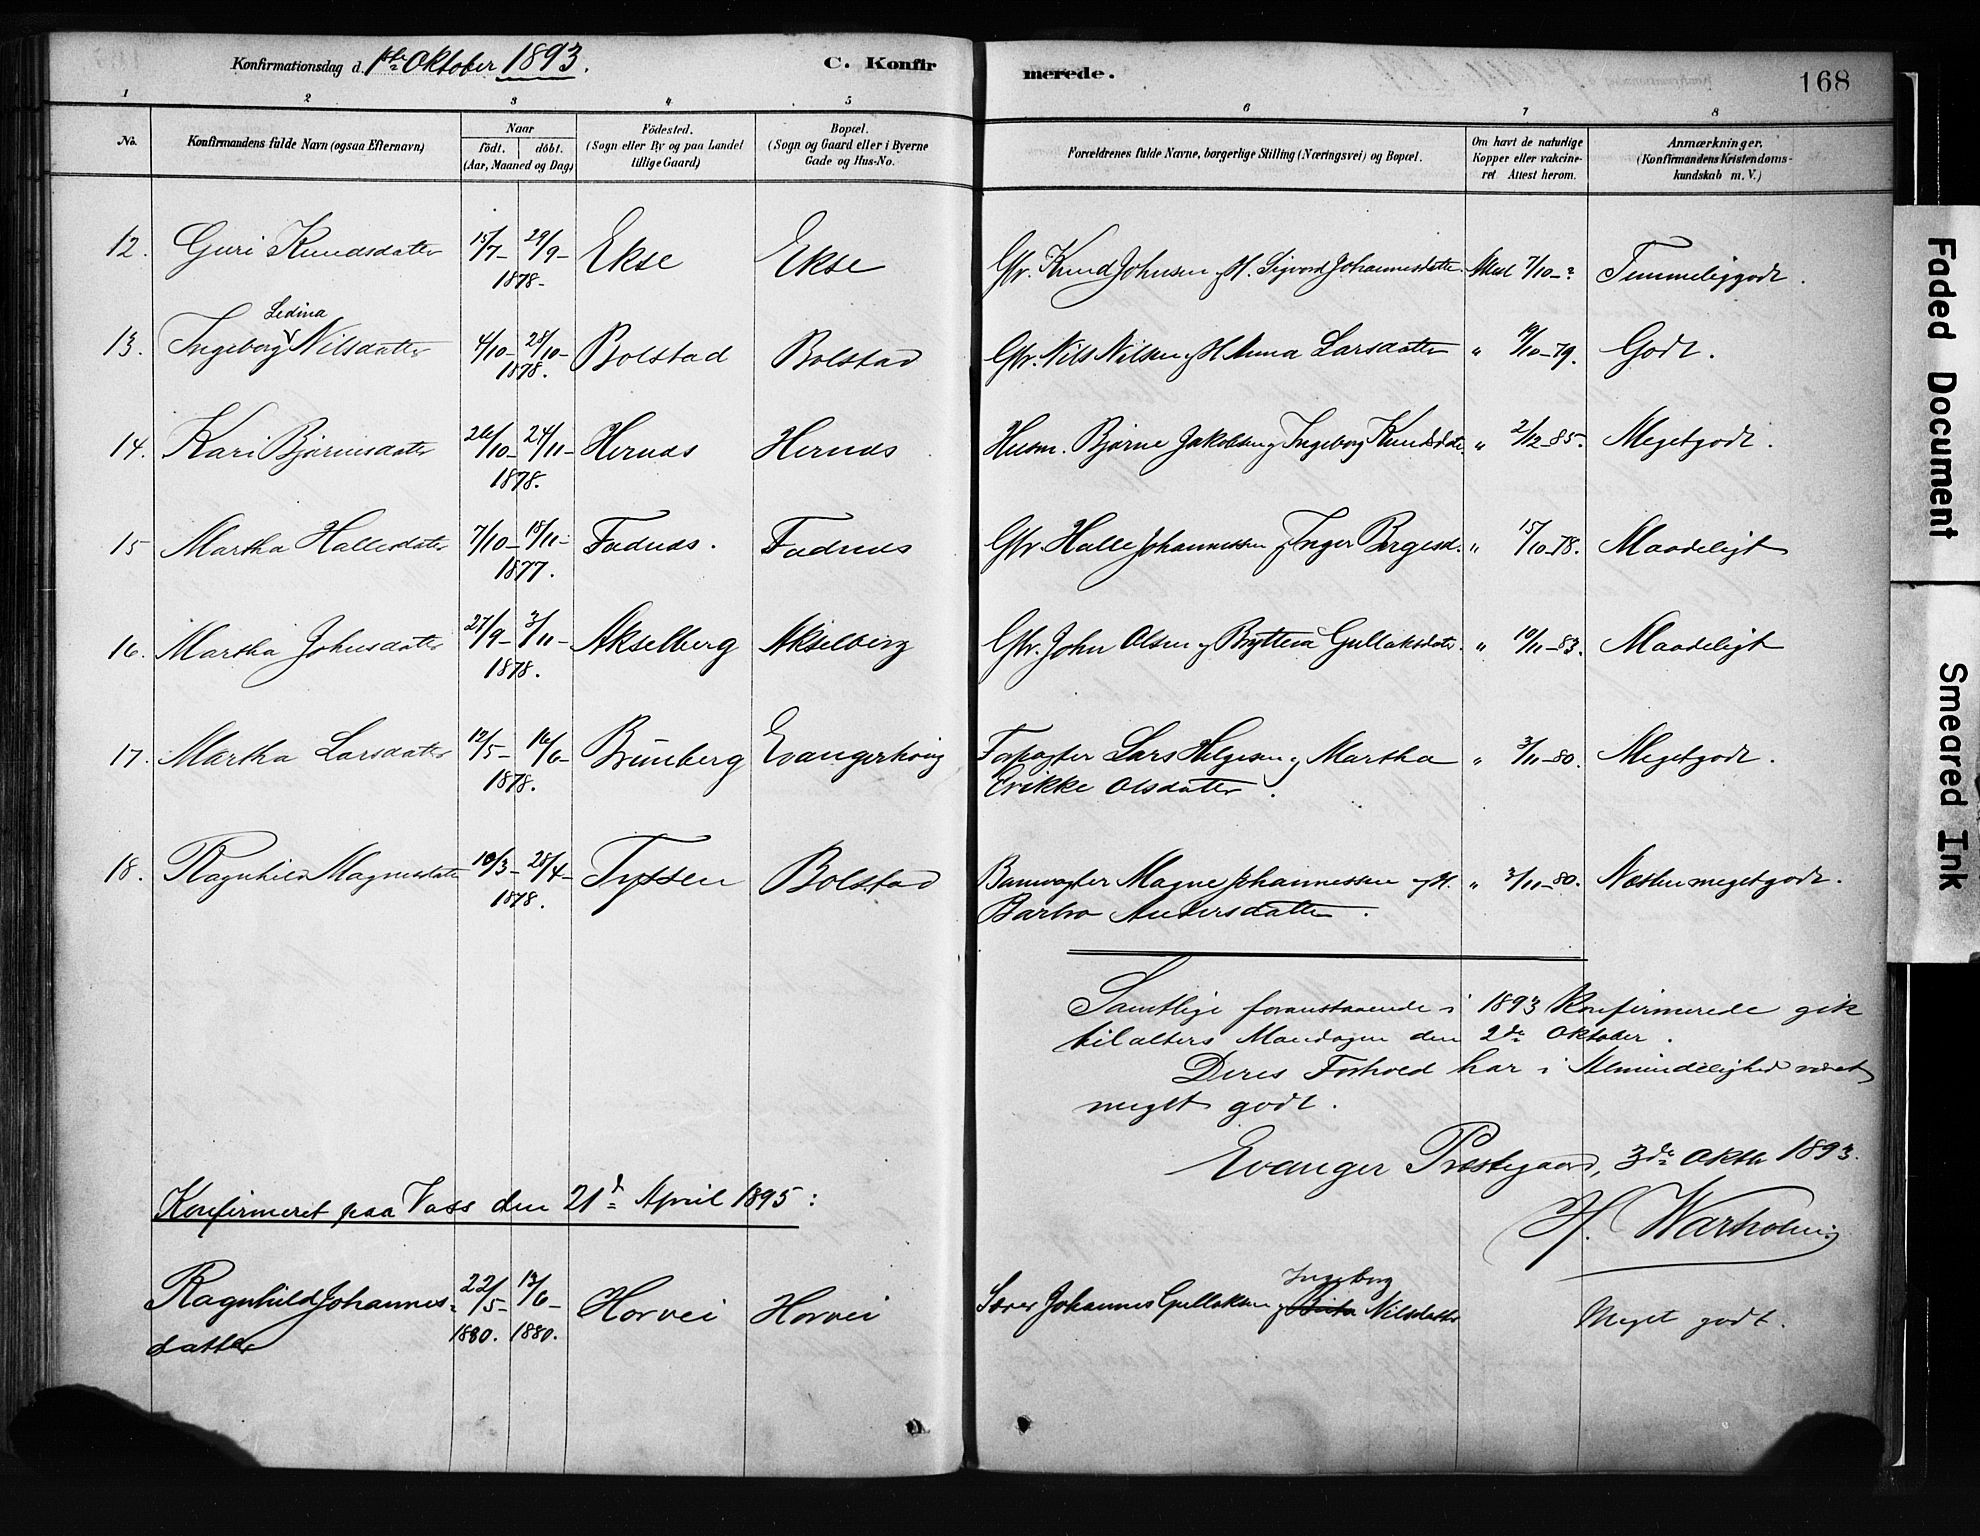 Konfirmationsdag d. 1ste Oktober 1893.
C. Konfirmerede.
168
1 2 3 4 5 6 7 8
No.
Konfirmandens fulde Navn (ogsaa Efternavn)
Naar
födt. döbt.
(Aar, Maaned og Dag)
Födested.
(Sogn eller By og paa Landet
tillige Gaard)
Bopæl.
(Sogn og Gaard eller i Byerne
Gade og Hus-No.
Forældrenes fulde Navne, borgerlige Stilling (Næringsvei) og Bopæl.
Om havt de naturlige
Kopper eller vakcine-
ret Attest herom.
Anmærkninger.
(Konfirmandens Kristendoms-
kundskab m. V.)
12. Guri Knudsdatter 15/7- 29/9- 1878- Ekse Ekse Gbr. Knud Johnsen og H. Sigvord Johannesdatter 7/10-? Temmeliggodt.
13. Ingeborg Ledina Nilsdatter 4/10- 28/10- 1878. Bolstad Bolstad Gbr. Nils Nilsen og H Anna Larsdatter " 19/10-79. Godt.
14. Kari Bjørnesdatter 26/10- 24/11- 1878. Hernæs Hernæs Husm. Bjørne Jakobsen og Ingeborg Knudsdatr " 2/12-85. Megetgodt.
15 Martha Hallesdatter 7/10- 18/11- 1877. Fadnæs. Fadnæs Gbr. Halle Johannessen og Inger Børgesd. " 15/10-78. Maadeligt
16. Martha Johnsdatter 27/9- 3/11- 1878. Akselberg Akselberg Gbr. John Olsen og Byttena Gullaksdatr. " 10/11-83. Maadeligt
17. Martha Larsdatter 12/5- 16/6- 1878. Brunberg Evangerhøvig Forpagter Lars Helgesen og Martha " 3/11-80. Megetgodt.
Erikke Olsdatter.
18. Ragnhild Magnesdatter 10/3- 28/4- 1878. Tyssen Bolstad Banevogter Magne Johannessen og H. " 3/11-80. Næsten megetgodt.
Barbro Andersdatter.
Samtlige foranstaaende i 1893 Konfirmerede gik
tilalters Mandagen den 2de Oktober.
Deres Forhold har i Almindelighed været
meget godt.
Evanger Præstegaard, 3de Oktbr 1893.
H. Warholm
Konfirmeret paa Voss den 21de April 1895:
Ragnhild Johannes- 22/5- 13/6- Horvei Horvei Johannes Gullaksen og Ingeborg Nilsdatter Meget godt.
datter 1880. 1880.
Faded Document
Smeared Ink